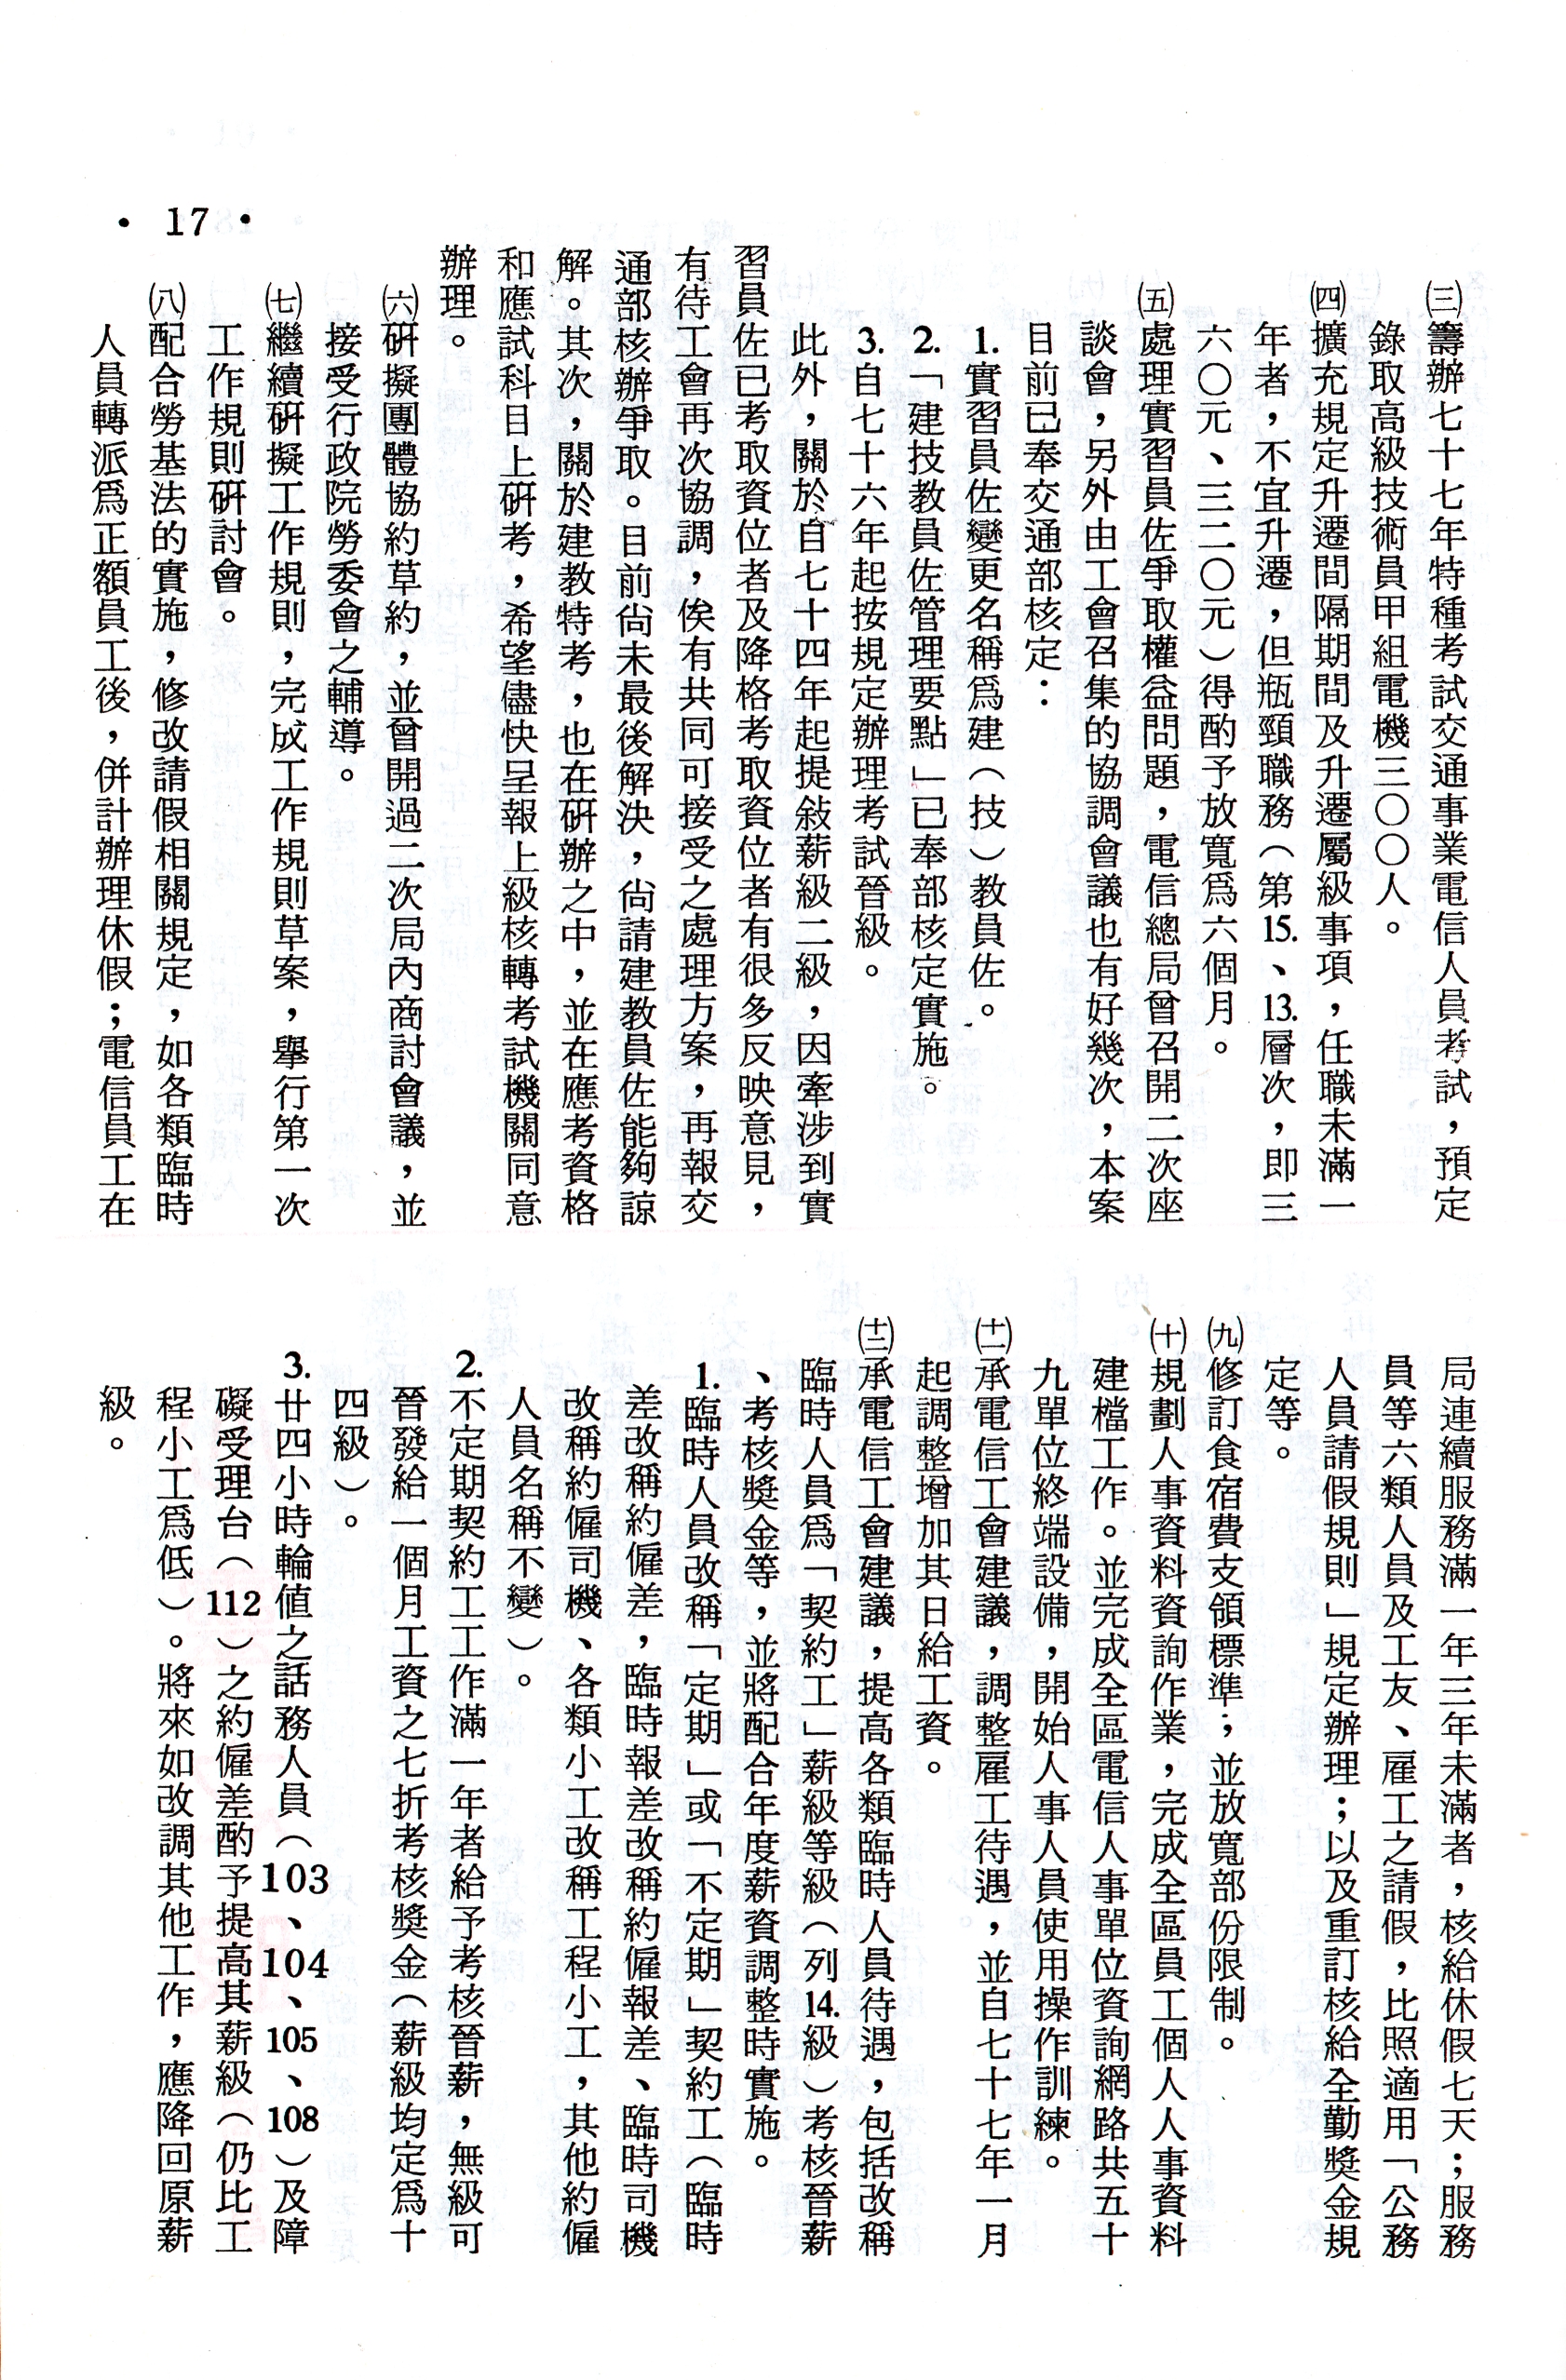 ㈢籌辦七十七年特種考試交通事業電信人員考試，預定
錄取高級技術員甲組電機三〇〇人。
㈣擴充規定升遷間隔期間及升遷屬級事項，任職未滿一
年者，不宜升遷，但瓶頸職務（第15.、13.層次，即三
六〇元、三二〇元）得酌予放寬爲六個月。
㈤處理實習員佐爭取權益問題，電信總局曾召開二次座
談會，另外由工會召集的協調會議也有好幾次，本案
目前已奉交通部核定：
1.實習員佐變更名稱爲建（技）教員佐。
2.「建技教員佐管理要點」已奉部核定實施。
3.自七十六年起按規定辦理考試晉級。
此外，關於自七十四年起提敍薪級二級，因牽涉到實
習員佐已考取資位者及降格考取資位者有很多反映意見，
有待工會再次協調，俟有共同可接受之處理方案，再報交
通部核辦爭取。目前尙未最後解決，尙請建教員佐能夠諒
解。其次，關於建教特考，也在硏辦之中，並在應考資格
和應試科目上硏考，希望儘快呈報上級核轉考試機關同意
辦理。
㈥硏擬團體協約草約，並曾開過二次局內商討會議，並
接受行政院勞委會之輔導。
㈦繼續硏擬工作規則，完成工作規則草案，舉行第一次
工作規則硏討會。
㈧配合勞基法的實施，修改請假相關規定，如各類臨時
人員轉派爲正額員工後，併計辦理休假；電信員工在
局連續服務滿一年三年未滿者，核給休假七天；服務
員等六類人員及工友、雇工之請假，比照適用「公務
人員請假規則」規定辦理；以及重訂核給全勤獎金規
定等。
㈨修訂食宿費支領標準；並放寬部份限制。
㈩規劃人事資料資詢作業，完成全區員工個人人事資料
建檔工作。並完成全區電信人事單位資詢網路共五十
九單位終端設備，開始人事人員使用操作訓練。
(十一)承電信工會建議，調整雇工待遇，並自七十七年一月
起調整增加其日給工資。
(十二)承電信工會建議，提高各類臨時人員待遇，包括改稱
臨時人員爲「契約工」薪級等級（列14.級）考核晉薪
、考核獎金等，並將配合年度薪資調整時實施。
1.臨時人員改稱「定期」或「不定期」契約工（臨時
差改稱約僱差，臨時報差改稱約僱報差、臨時司機
改稱約僱司機、各類小工改稱工程小工，其他約僱
人員名稱不變）。
2.不定期契約工工作滿一年者給予考核晉薪，無級可
晉發給一個月工資之七折考核獎金（薪級均定爲十
四級）。
3.廿四小時輪值之話務人員（103、104、105、108）及障
礙受理台（112）之約僱差酌予提高其薪級（仍比工
程小工爲低）。將來如改調其他工作，應降回原薪
級。
• 17 •